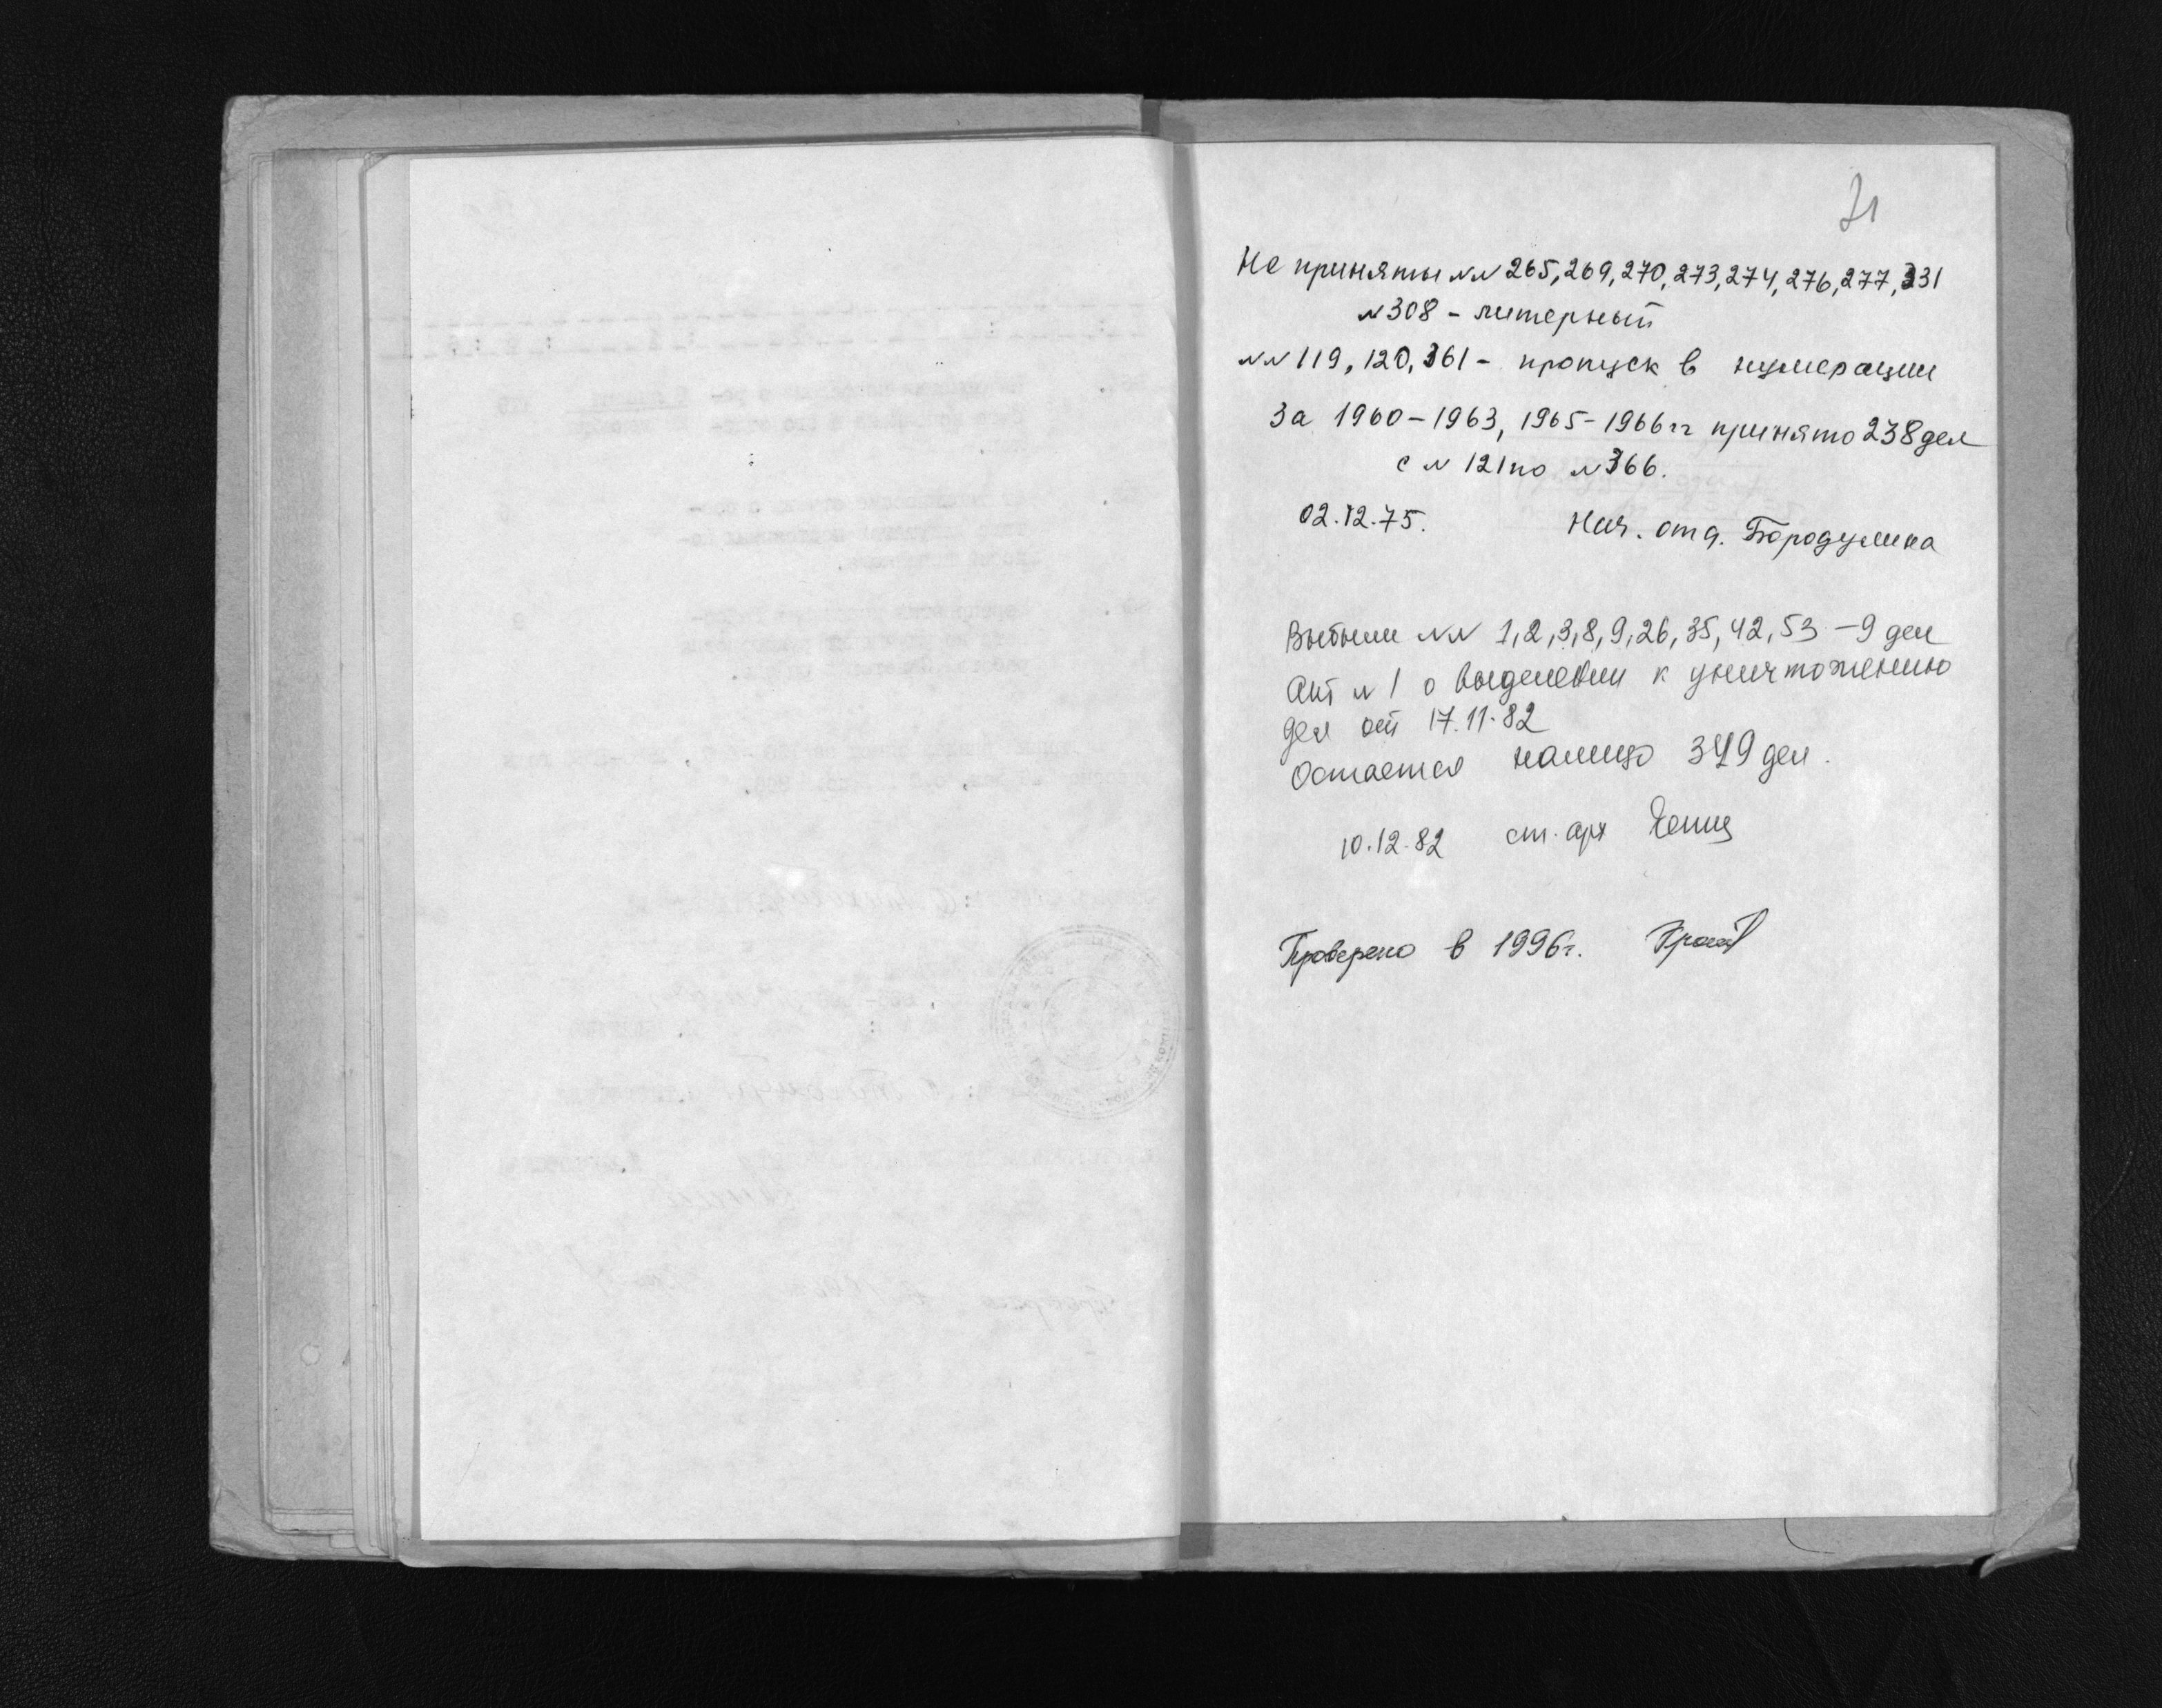 71
Не приняты №№ 265, 269, 270, 273, 274, 276, 277, 331
№ 308 – литерный
№№ 119, 120, 361 – пропуск в нумерации
За 1960–1963, 1965–1966 гг принято 238 дел
с № 121 по № 366.
02.12.75. Нач. отд. Бородулина
Выбыли №№ 1, 2, 3, 8, 9, 26, 35, 42, 53 – 9 дел
Акт № 1 о выделении к уничтожению
дел от 17.11.82
Остается налицо 349 дел.
10.12.82 ст. арх
Проверено в 1996 г.